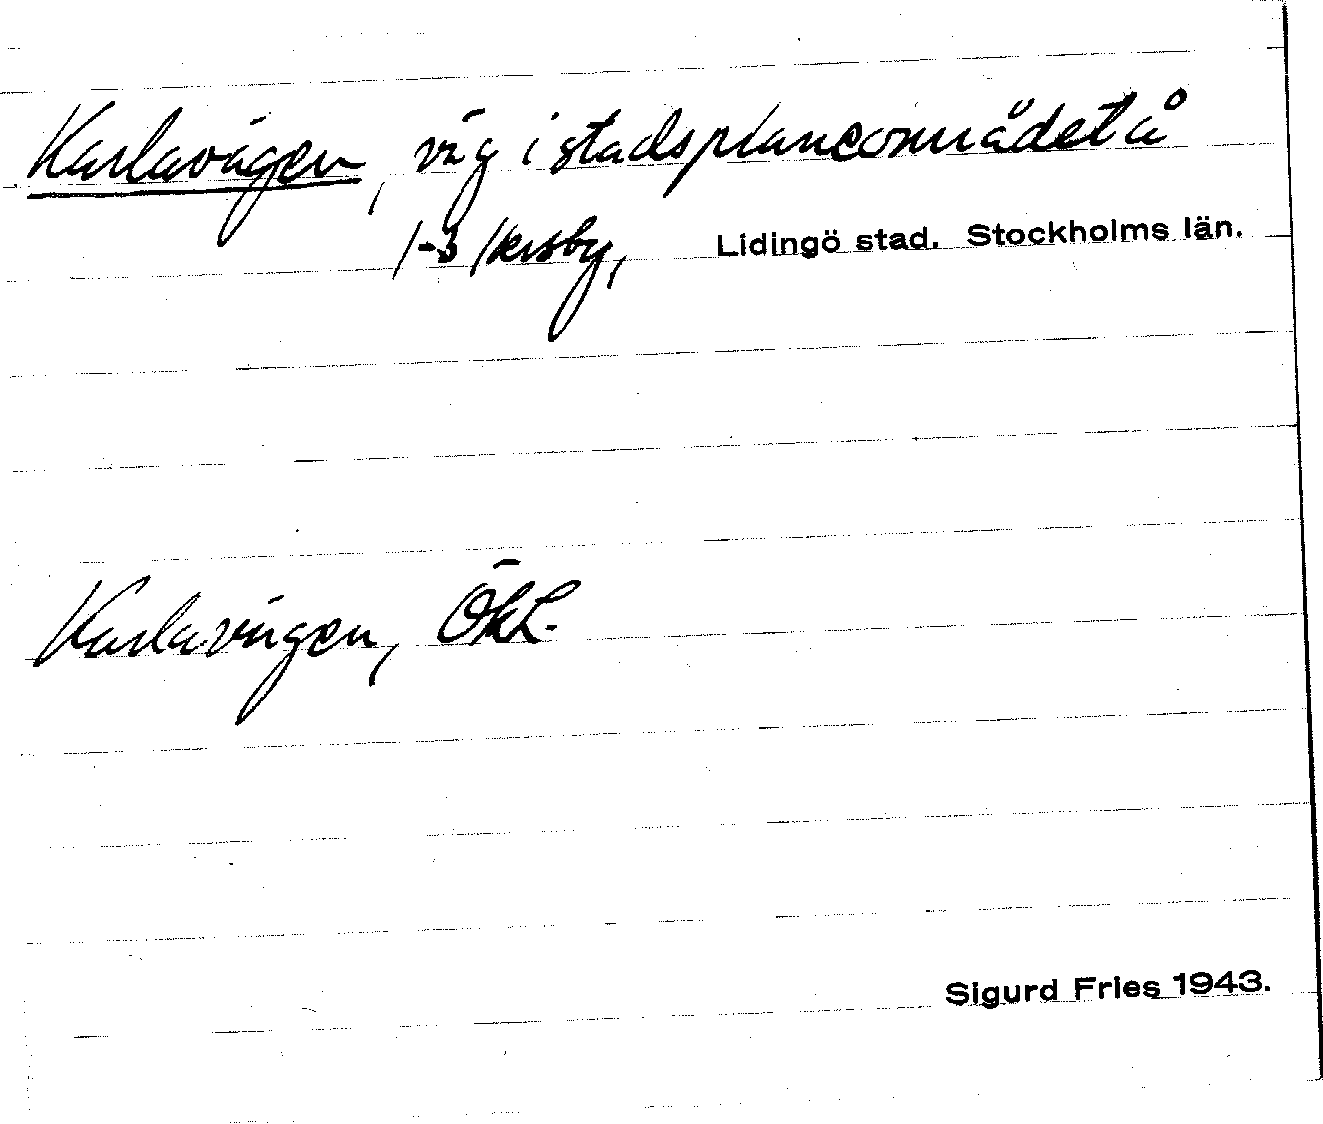 Karlavägen, väg i stadsplaneområdet å
1-3 Kersby, Lidingö stad. Stockholms län.
Karlavägen, ÖkL.
Sigurd Fries 1943.